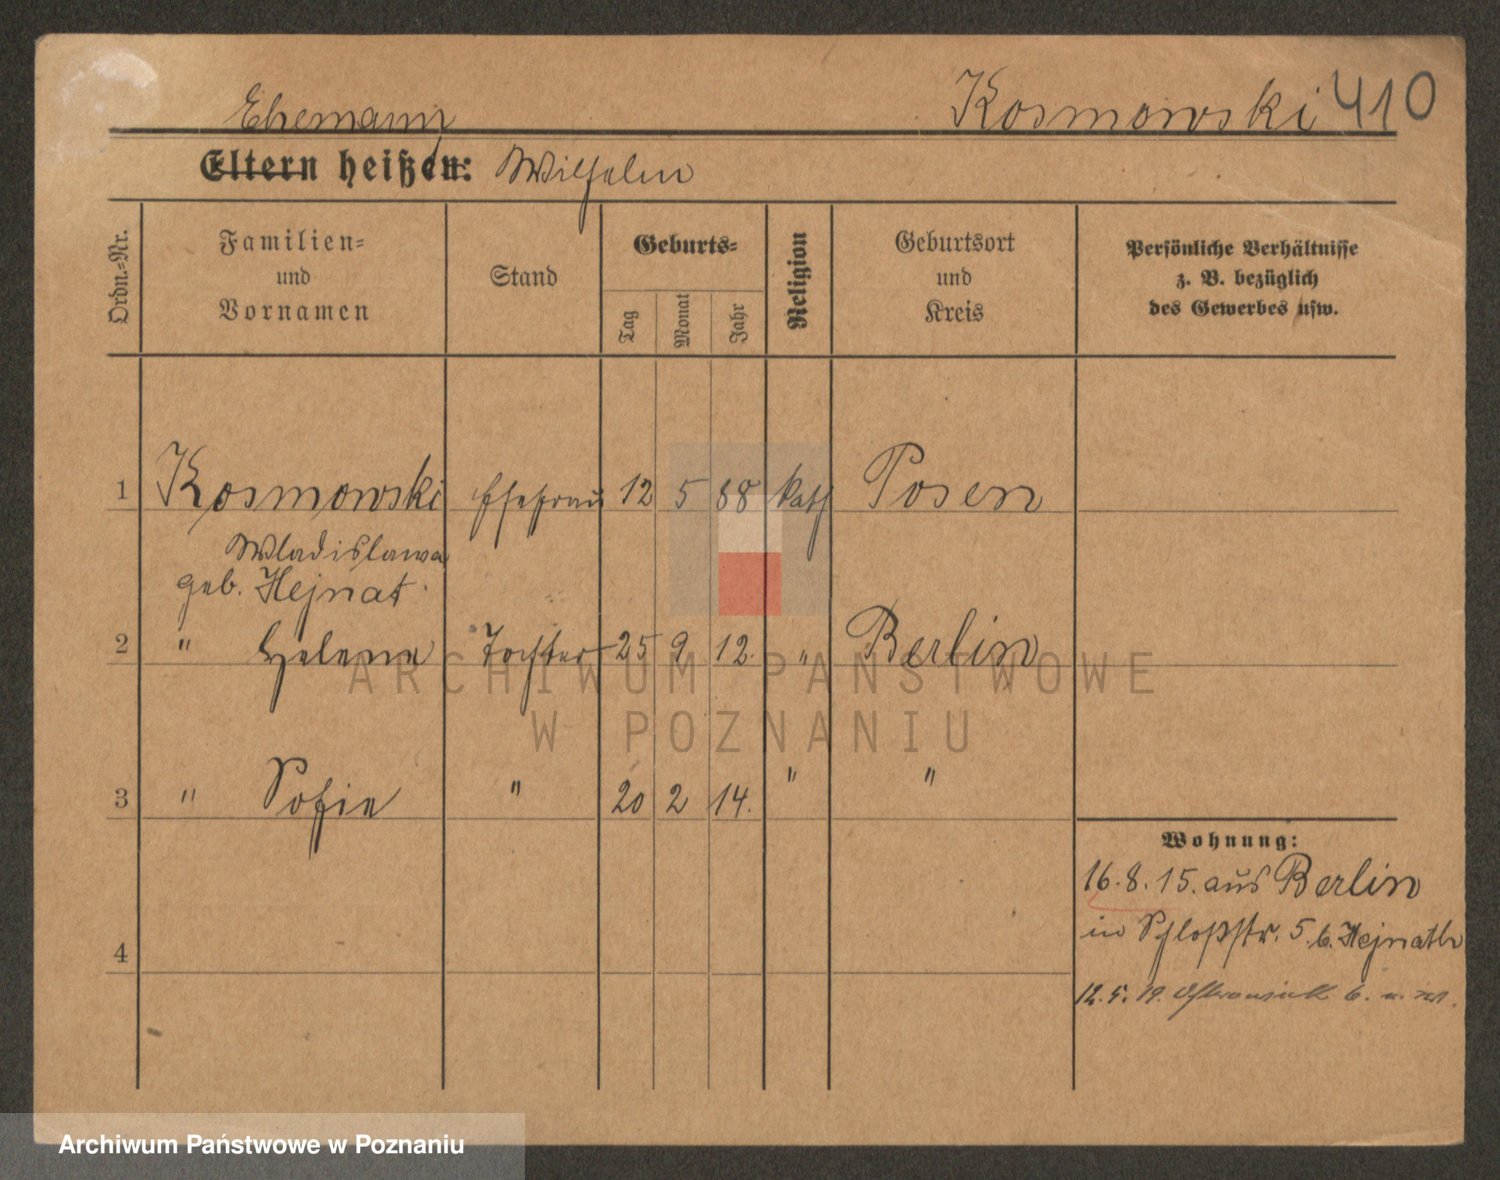 Ehemann Kosmowski 410
Eltern heißen: Wilhelm
Ordn.-Nr.
Familien-
und
Vornamen
Stand
Geburts-
Tag
Monat
Jahr
Religion
Geburtsort
und
Kreis
Persönliche Verhältnisse
z. B. bezüglich
des Gewerbes usw.
1 Kosmowski Ehefrau 12 5 88 kath Posen
Wladislawa
geb. Hejnat
2 " Helene Tochter 25 9 12. " Berlin
3 " Sofie " 20 2 14. " "
4
Wohnung:
16.8.15. aus Berlin
in Schloßstr. 5. b. Hejnath
12.5.19.
ARCHIWUM PAŃSTWOWE
W POZNANIU
Archiwum Państwowe w Poznaniu